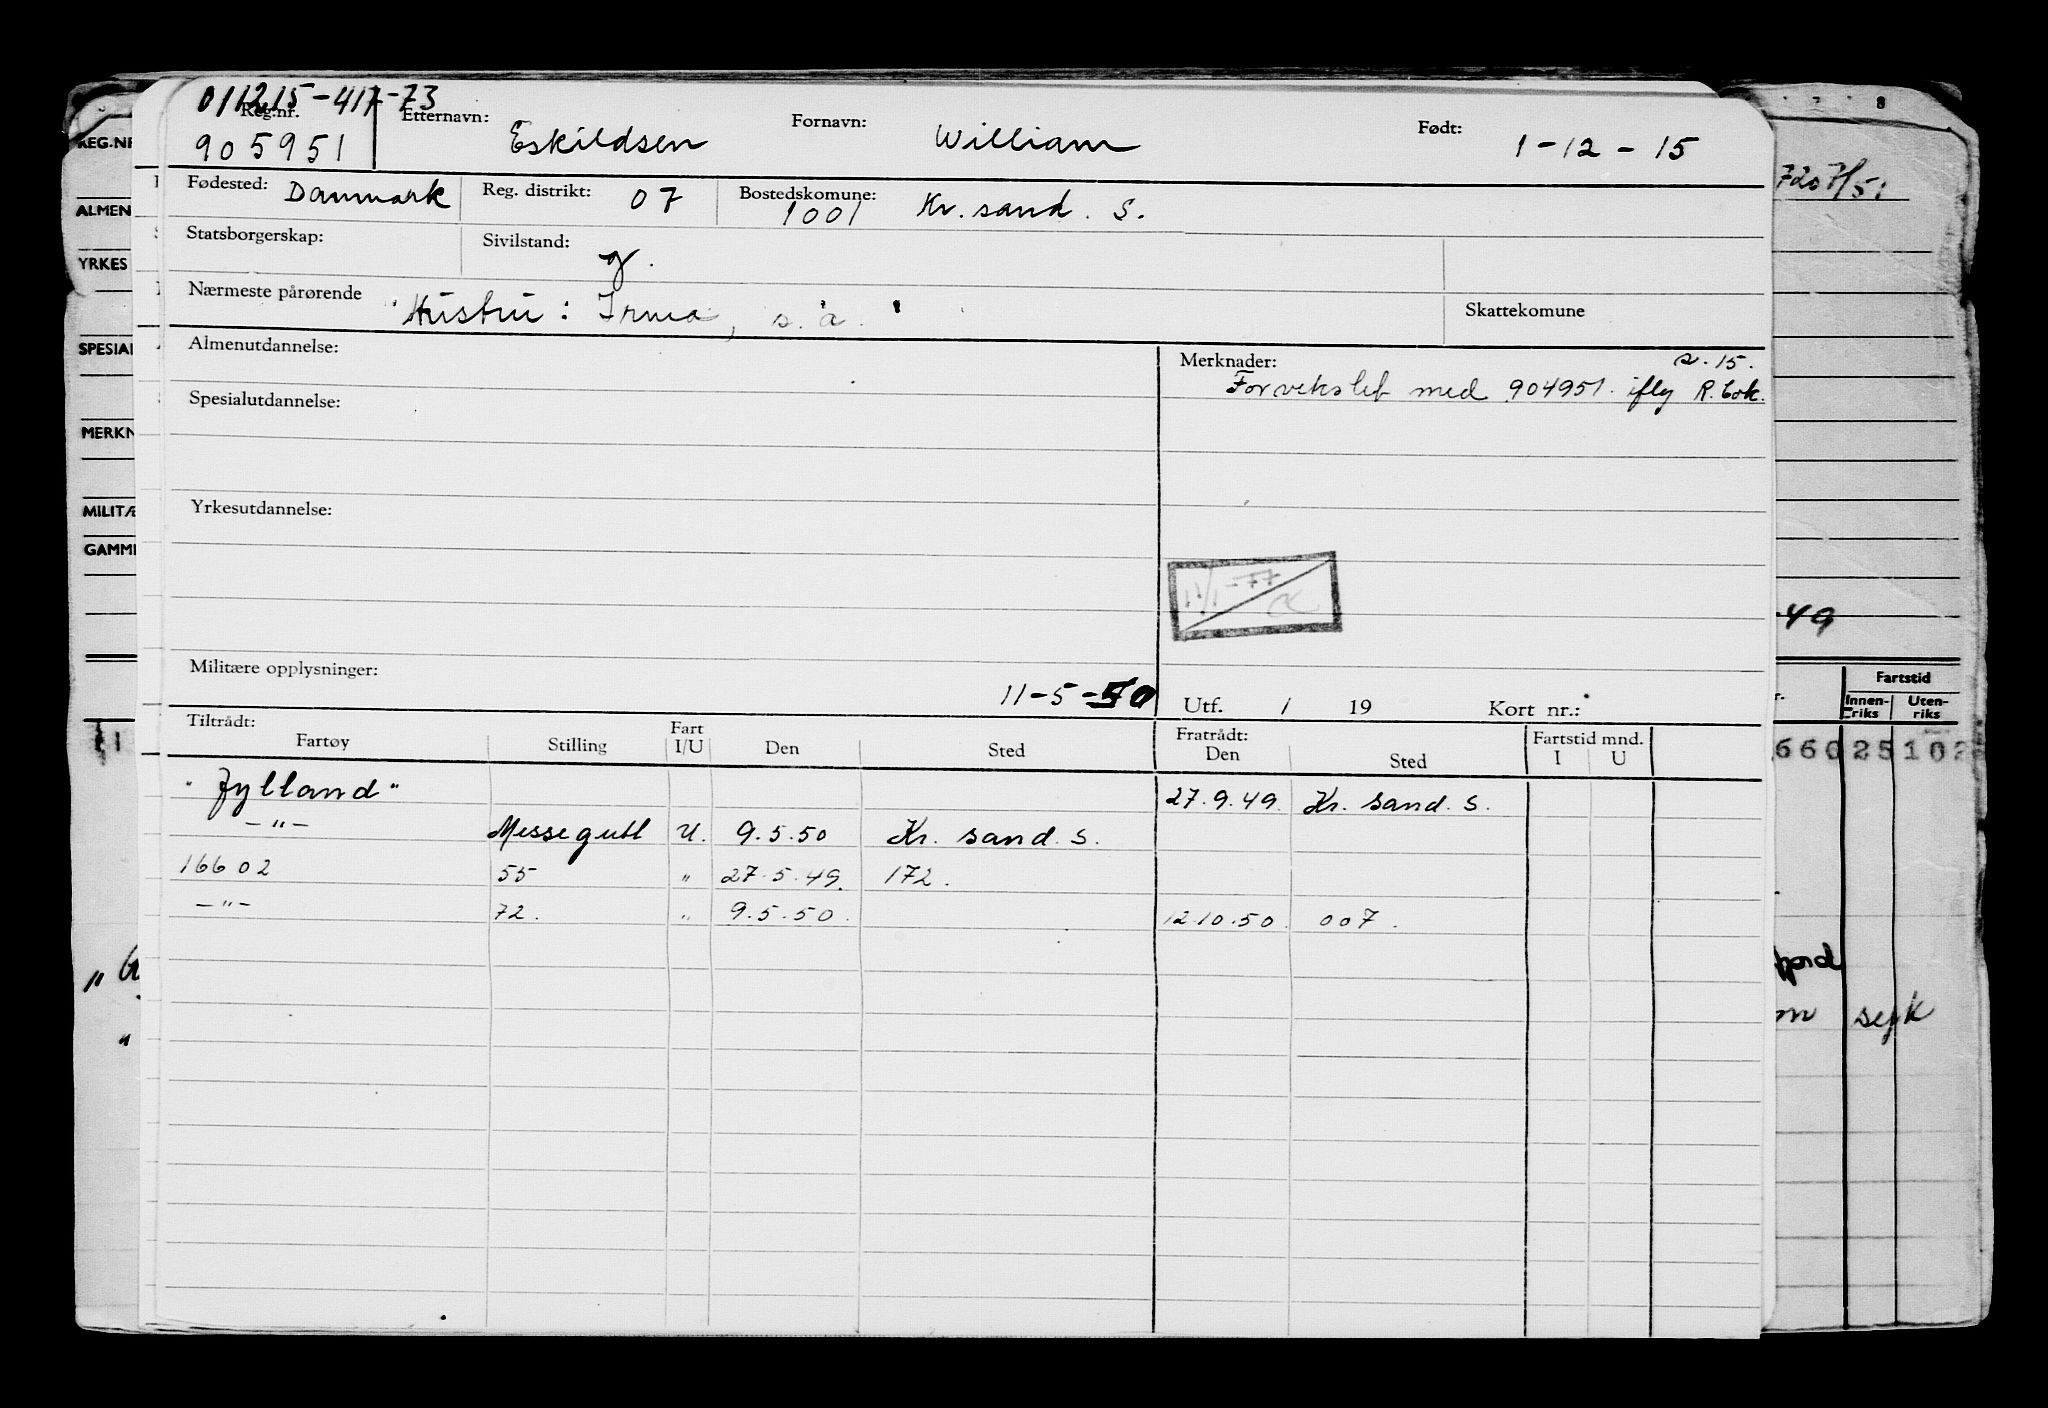 011215-417-73
Reg.nr. 905951 Etternavn: Eskildsen Fornavn: William Født: 1-12-15
Fødested: Danmark Reg. distrikt: 07 Bostedskomune: 1001 Kr.sand. S.
Statsborgerskap: Sivilstand: g.
Nærmeste pårørende Hustru: Irma, s.a. Skattekomune
Almenutdannelse: Merknader: s.15.
Forvekslet med 904951. iflg R.bok.
Spesialutdannelse:
Yrkesutdannelse:
11/1-77
Militære opplysninger:
11-5-50 Utf. / 19 Kort nr.:
Tiltrådt: Fart Fratrådt: Fartstid mnd.
Fartøy Stilling I/U Den Sted Den Sted I U
"Jylland" 27.9.49. Kr. Sand. S.
-"- Messegutt U. 9.5.50 Kr. sand. S.
16602 55 " 27.5.49. 172.
-"- 72. " 9.5.50. 12.10.50. 007.
REG.NR
ALMEN
YRKES
SPESIAL
MERKN
MILITÆ
GAMM
7 8
-49
Fartstid
Innen-riks Uten-riks
660 25 102
fjord
sejk